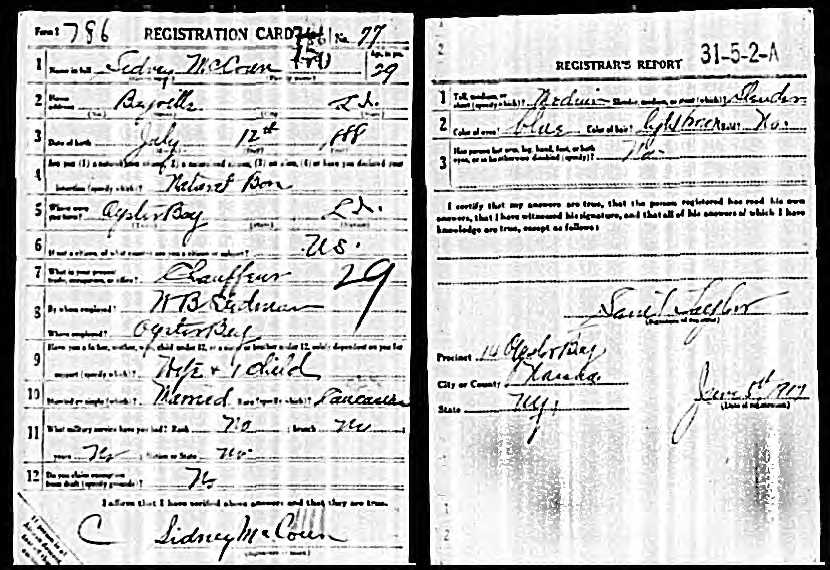 Form 1 786 REGISTRATION CARD No. 77
1 Name in full Sidney McCoun Age, in yrs. 29
2 Home address Bayville L.I.
3 Date of birth July 12th 1888
4 Are you (1) a natural born citizen, (2) a naturalized citizen, (3) an alien, (4) or have you declared your
intention (specify which)? Natural Born
5 Where were you born? Oyster Bay L.I.
6 If not a citizen, of what country are you a citizen or subject? U.S.
7 What is your present trade, occupation, or office? Chauffeur 29
8 By whom employed? W B
Where employed? Oyster Bay
9 Have you a father, mother, wife, child under 12, or a sister or brother under 12, solely dependent on you for
support (specify which)? Wife + 1 child
10 Married or single (which)? Married Race (specify which)? Caucasian
11 What military service have you had? Rank No ; branch No
years No ; Nation or State No
12 Do you claim exemption from draft (specify grounds)? No
I affirm that I have verified above answers and that they are true.
C Sidney McCoun
REGISTRAR'S REPORT 31-5-2-A
1 Tall, medium, or short (specify which)? Medium Slender, medium, or stout (which)? Slender
2 Color of eyes? blue Color of hair? light brown Bald? No.
3 Has person lost arm, leg, hand, foot, or both eyes, or is he otherwise disabled (specify)? No
I certify that my answers are true, that the person registered has read his own
answers, that I have witnessed his signature, and that all of his answers of which I have
knowledge are true, except as follows:
Saml Taylor
(Signature of registrar)
Precinct 14 Oyster Bay
City or County Nassau
State N.Y. June 5th 1917
(Date of registration)